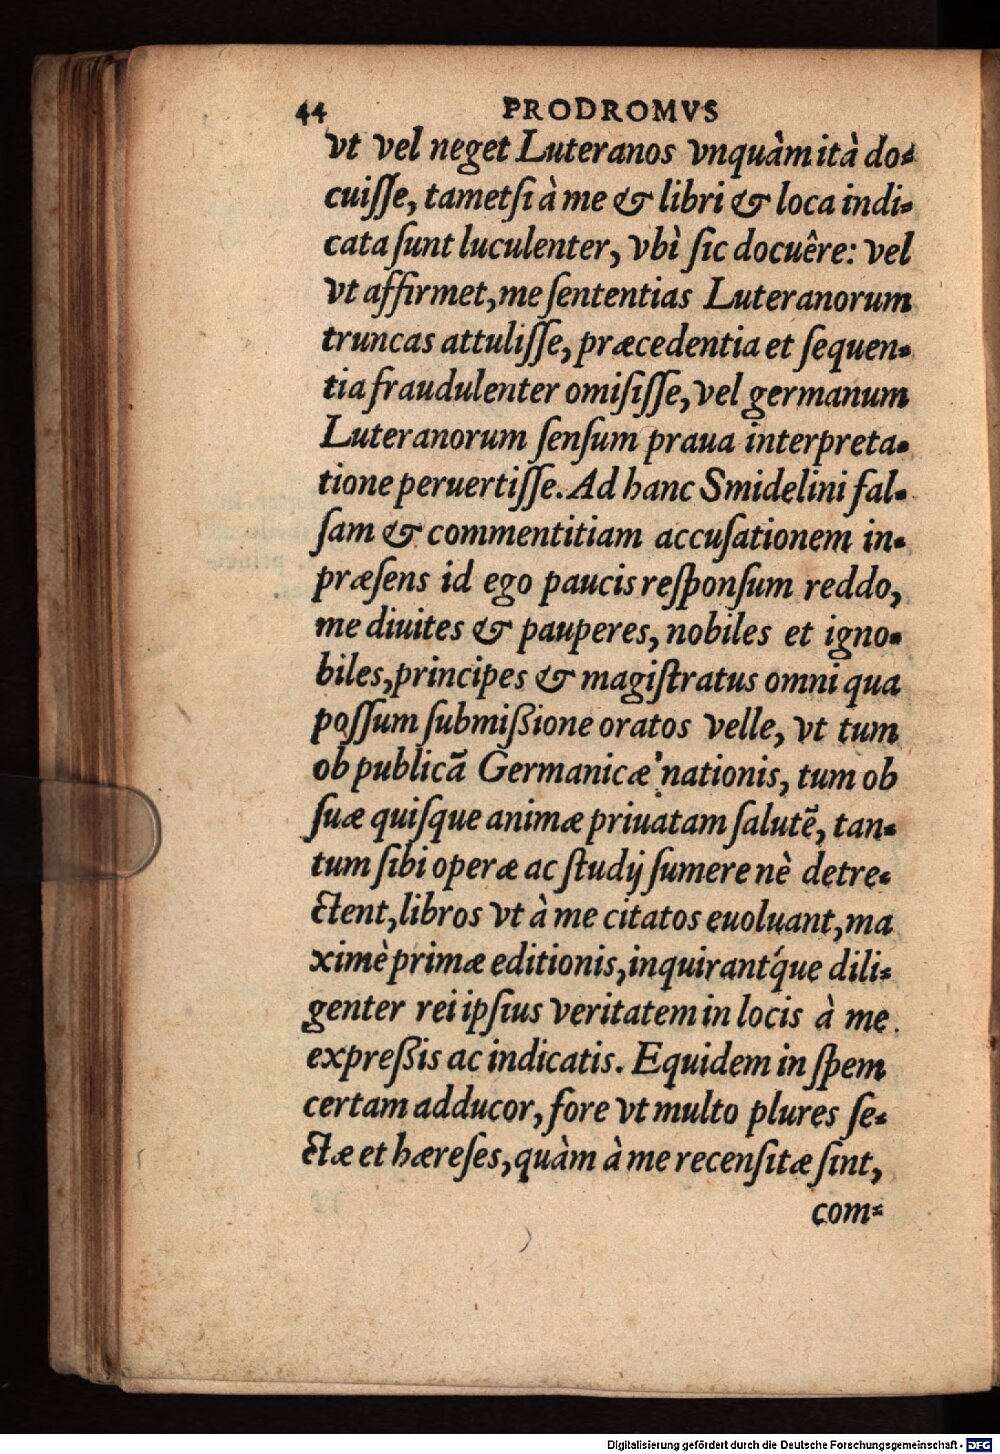 44 PRODROMVS
vt vel neget Luteranos vnquàm ità do-
cuiſſe, tametſi à me & libri & loca indi-
cata ſunt luculenter, vbì ſic docuêre: vel
vt affirmet, me ſententias Luteranorum
truncas attuliſſe, præcedentia et ſequen-
tia fraudulenter omiſiſſe, vel germanum
Luteranorum ſenſum praua interpreta-
tione peruertiſſe. Ad hanc Smidelini fal-
ſam & commentitiam accuſationem in-
præſens id ego paucis reſponſum reddo,
me diuites & pauperes, nobiles et igno-
biles, principes & magiſtratus omni qua
poſſum ſubmißione oratos velle, vt tum
ob publicā Germanicæ nationis, tum ob
ſuæ quiſque animæ priuatam ſalutē, tan-
tum ſibi operæ ac ſtudij ſumere nè detre-
ctent, libros vt à me citatos euoluant, ma
ximè primæ editionis, inquirant́que dili-
genter rei ipſius veritatem in locis à me
expreßis ac indicatis. Equidem in ſpem
certam adducor, fore vt multo plures ſe-
ctæ et hæreſes, quàm à me recenſitæ ſint,
com-
Digitalisierung gefördert durch die Deutsche Forschungsgemeinschaft - DFG